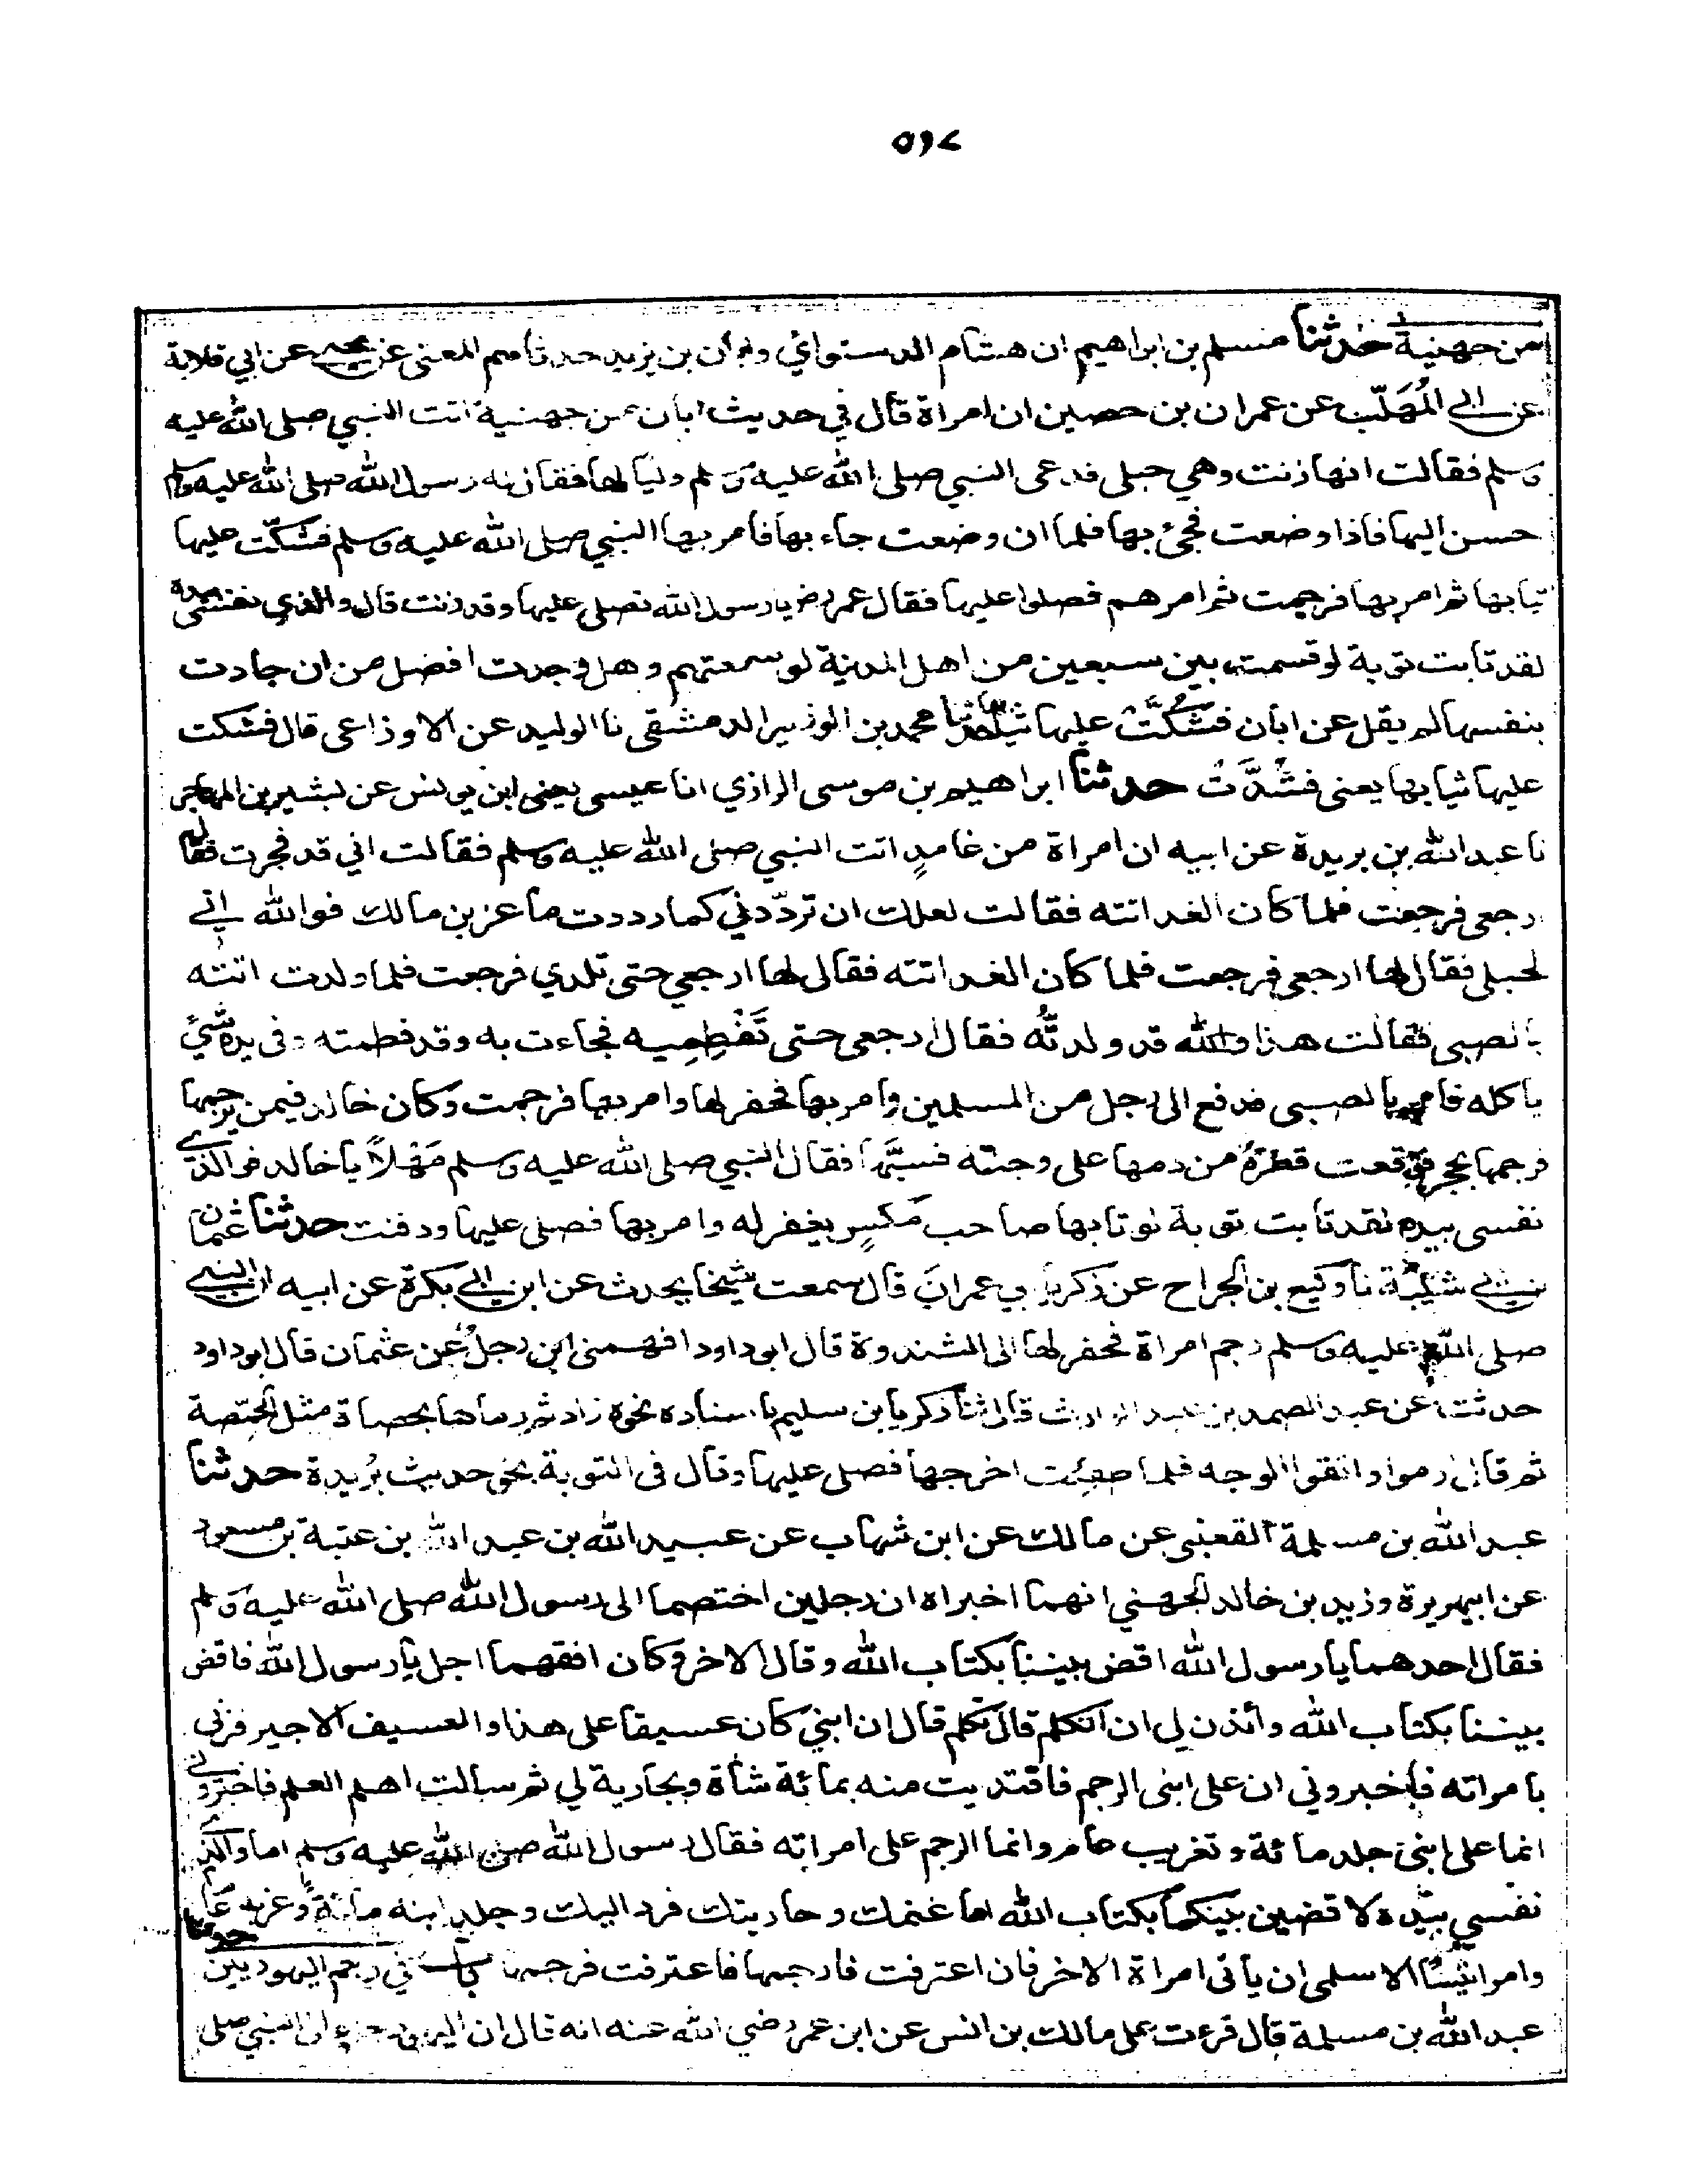 ٥٩٢
من جهنية حدثنا مسلم بن ابراهيم ان هشام الدستوائي وابان بن يزيد حدثاهم المعنى عن يحيى عن ابي قلابة
عن ابي المُهَلّب عن عمران بن حصين ان امراة قال في حديث ابان من جهنية اتت النبي صلى الله عليه
وسلم فقالت انها زنت وهي حبلى فدعى النبي صلى الله عليه وسلم وليا لها فقال له رسول الله صلى الله عليه وسلم
حسن اليها فاذا وضعت فجئ بها فلما ان وضعت جاء بها فامر بها النبي صلى الله عليه وسلم فشكّت عليها
ثيابها ثم امر بها فرجمت ثم امرهم فصلوا عليها فقال عمر رض يا رسول الله تصلى عليها وقد زنت قال والذي نفسى بيده
لقد تابت توبة لو قسمت بين سبعين من اهل المدينة لوسعتهم وهل وجدت افضل من ان جادت
بنفسها لم يقل عن ابان فشُكَّتْ عليها ثيابها حدثنا محمد بن الوزير الدمشقى نا الوليد عن الاوزاعى قال فشكت
عليها ثيابها يعنى فشُدَّتْ حدثنا ابراهيم بن موسى الرازي انا عيسى يعنى ابن يونس عن بشير بن المهاجر
نا عبد الله بن بريدة عن ابيه ان امراة من غامدٍ اتت النبي صلى الله عليه وسلم فقالت اني قد فجرت فقال
ارجعى فرجعت فلما كان الغد اتته فقالت لعلك ان تردّدني كما رددت ماعز بن مالك فوالله اني
لحبلى فقال لها ارجعى فرجعت فلما كان الغد اتته فقال لها ارجعي حتى تلدي فرجعت فلما ولدت اتته
بالصبى فقالت هذا والله قد ولدتُه فقال ارجعى حتى تَفْطِمِيه فجاءت به وقد فطمته وفى يده شئ
ياكله فامر بالصبى فدفع الى رجل من المسلمين وامر بها فحفر لها وامر بها فرجمت وكان خالد فيمن يرجمها
فرجمها بحجر فوقعت قطرةٌ من دمها على وجنته فسبَّها فقال النبي صلى الله عليه وسلم مَهْلاً يا خالد فوالذى
نفسى بيده لقد تابت توبة لو تابها صاحب مَكسٍ يغفر له وامر بها فصلى عليها ودفنت حدثنا عثمان
بن ابي شيبة نا وكيع بن الجراح عن زكريا ابي عمرانَ قال سمعت شيخا يحدث عن ابن ابي بكرة عن ابيه ان النبي
صلى الله عليه وسلم رجم امراة فحفر لها الى الثندوة قال ابو داود افهمنى ابن رجلٌ عن عثمان قال ابو داود
حدثت عن عبد الصمد بن عبد الوارث قال ثنا زكريا بن سليم باسناده نحوه زاد ثم رماها بحصاة مثل الحِمّصة
ثم قال ارموا واتقوا الوجه فلما طفئت اخرجها فصلى عليها وقال فى التوبة نحو حديث بُريدة حدثنا
عبد الله بن مسلمة القعنبى عن مالك عن ابن شهاب عن عبيد الله بن عبد الله بن عتبة بن مسعود
عن ابيهريرة وزيد بن خالد الجهني انهما اخبراه ان رجلين اختصما الى رسول الله صلى الله عليه وسلم
فقال احدهما يا رسول الله اقض بيننا بكتاب الله وقال الاخر وكان افقهما اجل يا رسول الله فاقض
بيننا بكتاب الله وأذن لي ان اتكلم قال تكلم قال ان ابني كان عسيفا على هذا والعسيف الاجير فزنى
بامراته فاخبروني ان على ابنى الرجم فافتديت منه بمائة شاة وبجارية لي ثم سالت اهل العلم فاخبروني
انما على ابنى جلد مائة وتغريب عام وانما الرجم على امراته فقال رسول الله صلى الله عليه وسلم اما والذى
نفسي بيده لاقضين بينكما بكتاب الله اما غنمك وجاريتك فرد اليك وجلد ابنه مائة وغربه عاما
وامر انيسًا الاسلمى ان ياتى امراة الاخر فان اعترفت فارجمها فاعترفت فرجمها باب في رجم اليهوديين حدثنا
عبد الله بن مسلمة قال قرءت على مالك بن انس عن ابن عمر رضي الله عنه انه قال ان اليهود جاؤا الى النبي صلى